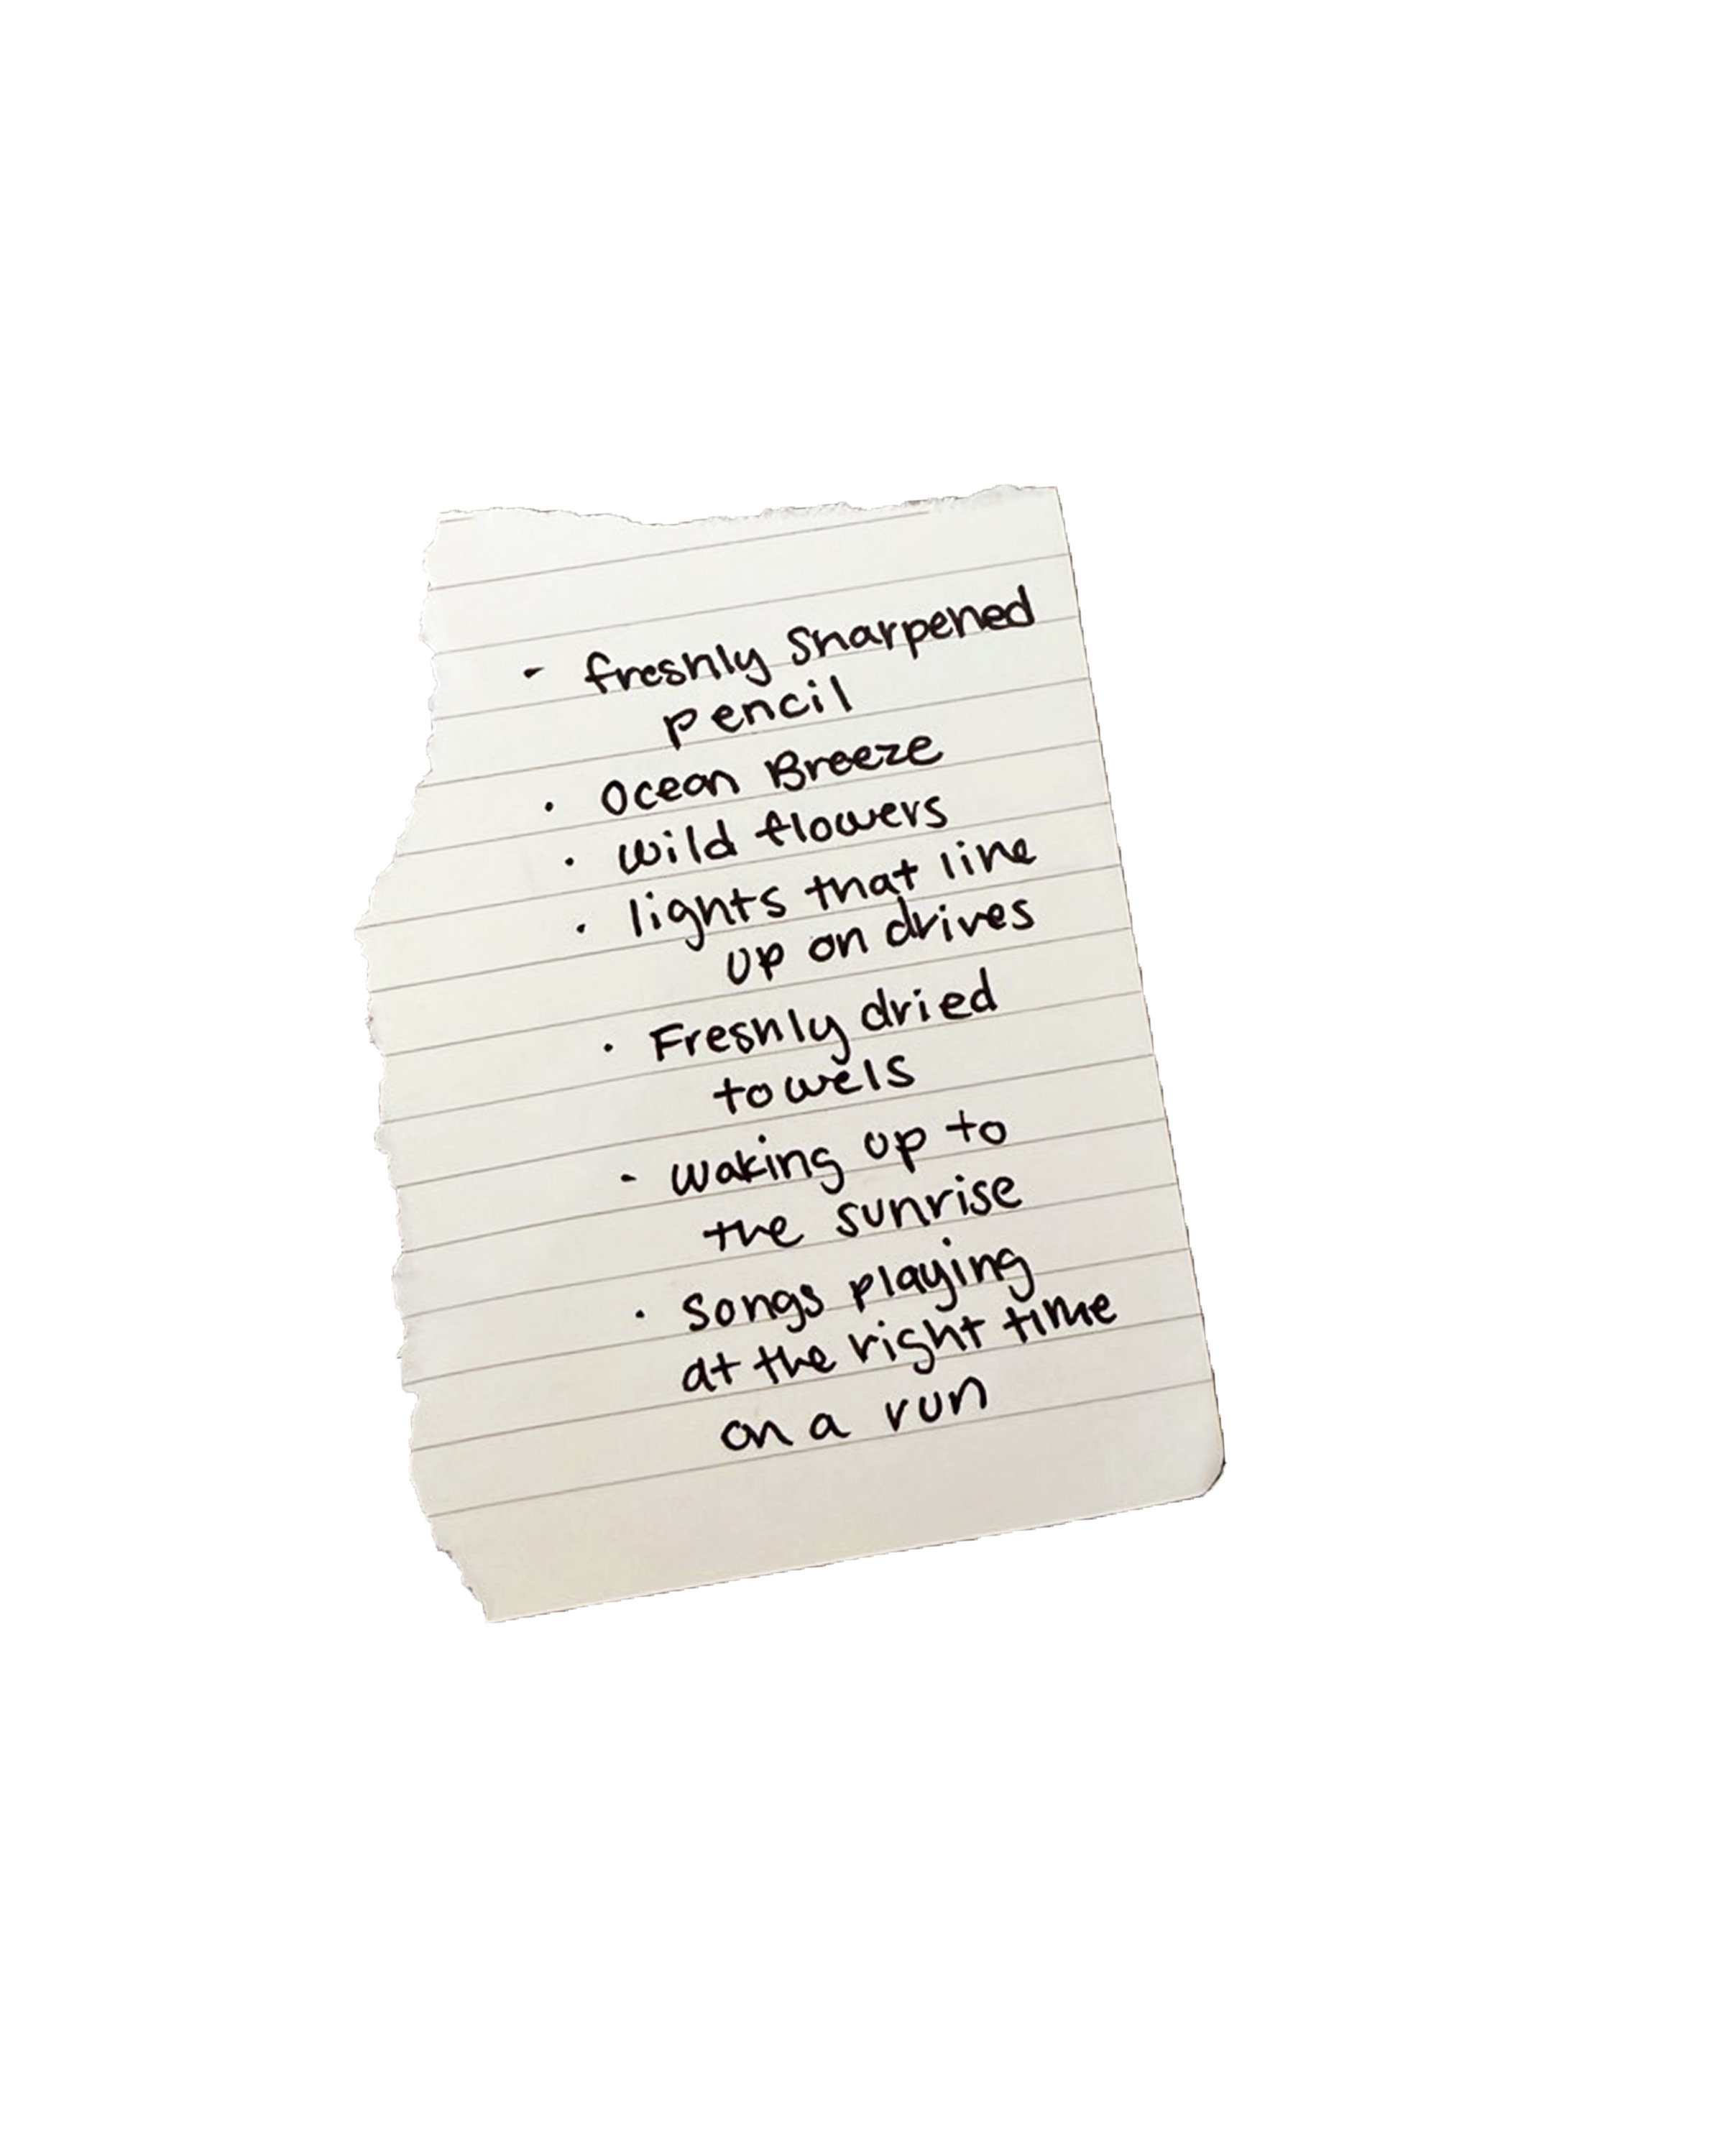 - freshly Sharpened
pencil
· Ocean Breeze
· wild flowers
· lights that line
up on drives
· Freshly dried
towels
- waking up to
the sunrise
· songs playing
at the right time
on a run